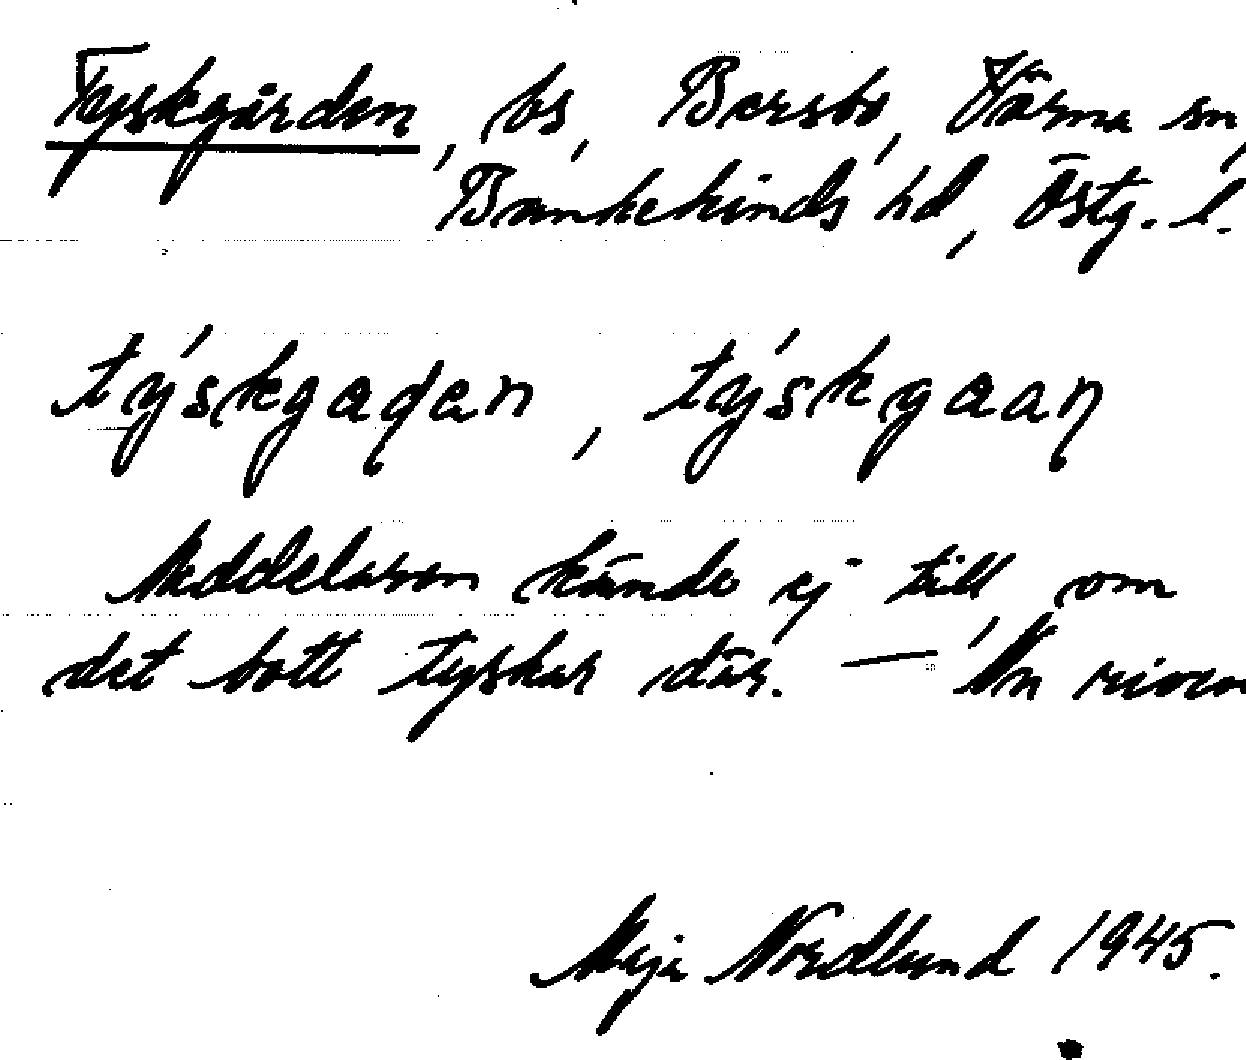 Tyskgården, bs, Bersbo, Värna sn,
Bankekinds hd, Östg. l.
týskgaɖan, týskgaaɳ
Meddelaren kände ej till, om
det bott tyskar där. — Nu riven
Maja Nordlund 1945.